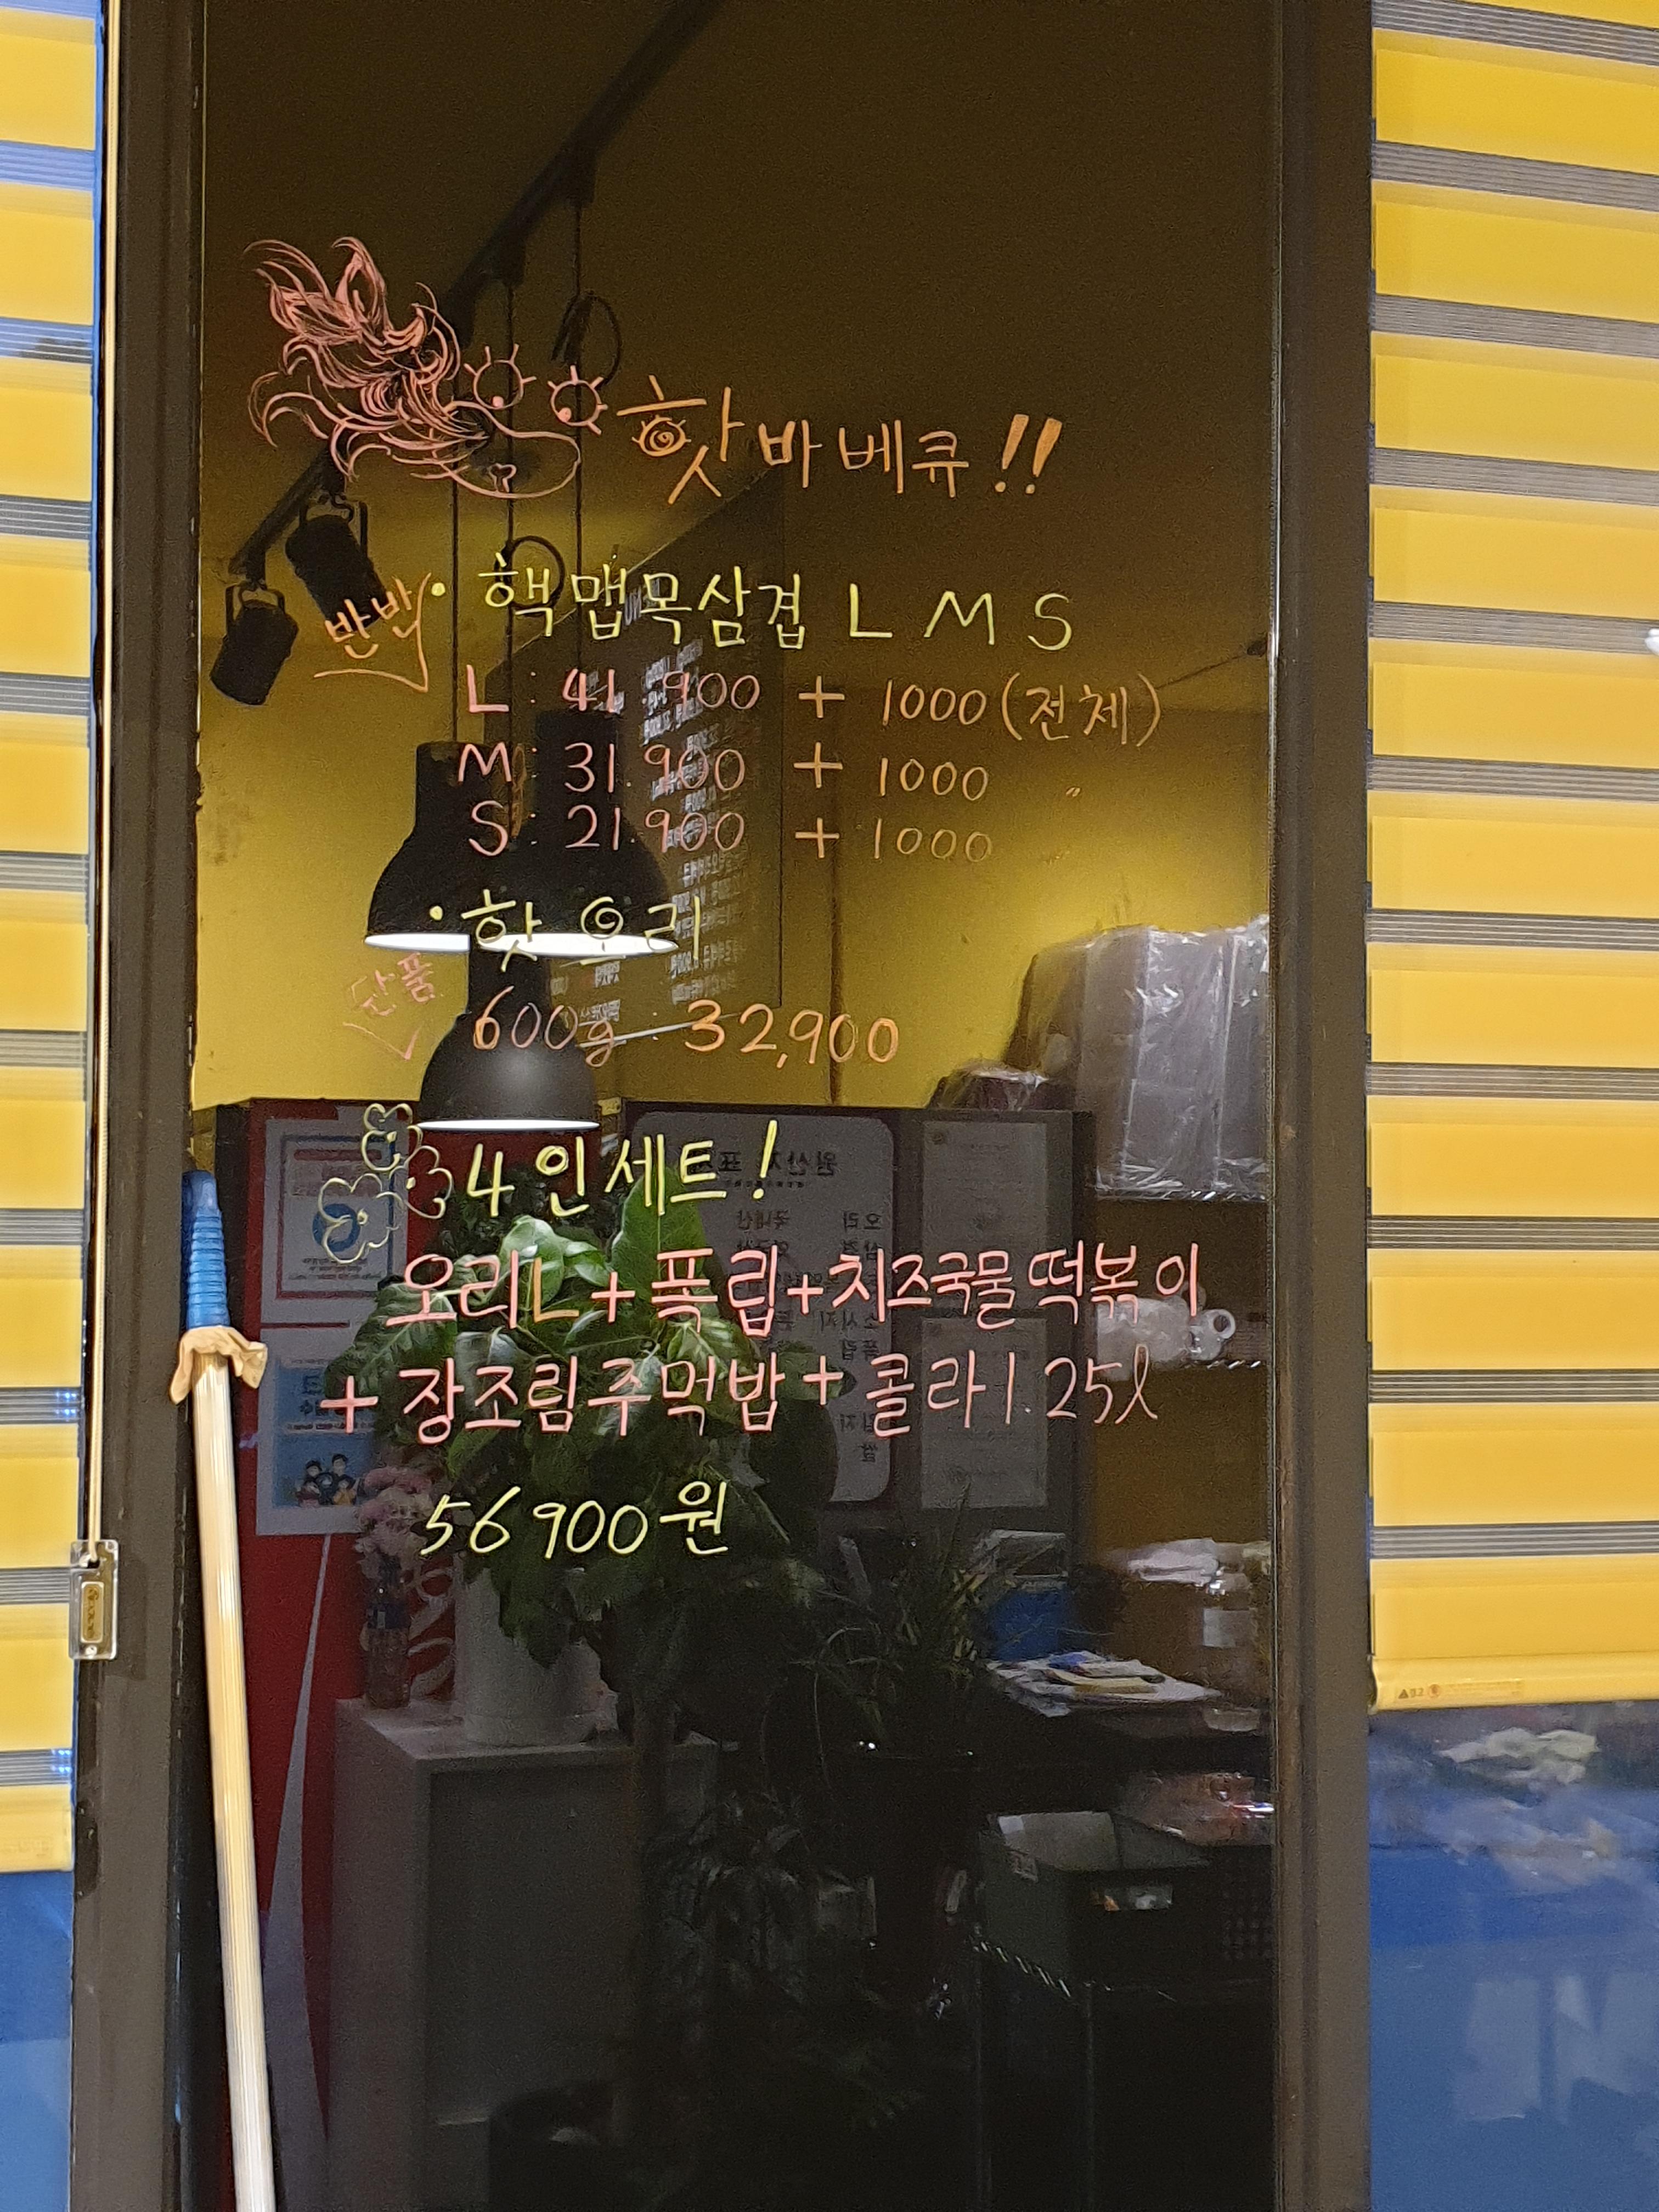 핫바베큐!!
반반
· 핵맵목삼겹 L M S
L : 41.900 + 1000 (전체)
M : 31.900 + 1000 〃
S : 21.900 + 1000 〃
· 핫오리
단품
600g : 32,900
4인세트!
오리L + 폭립 + 치즈국물떡볶이
+ 장조림주먹밥 + 콜라 1.25ℓ
56900원